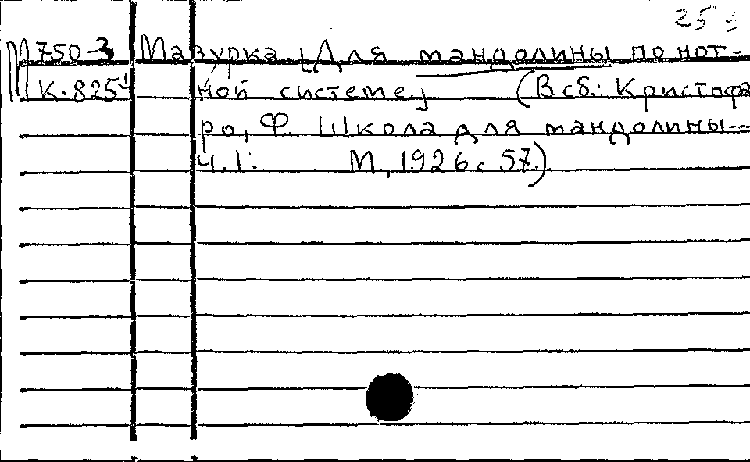 253
М750-3 Мазурка [Для мандолины по нот-
К-825 ной системе] (В сб.: Кристофа
ро, Ф. Школа для мандолины.-
Ч.1. М, 1926. с 57.)